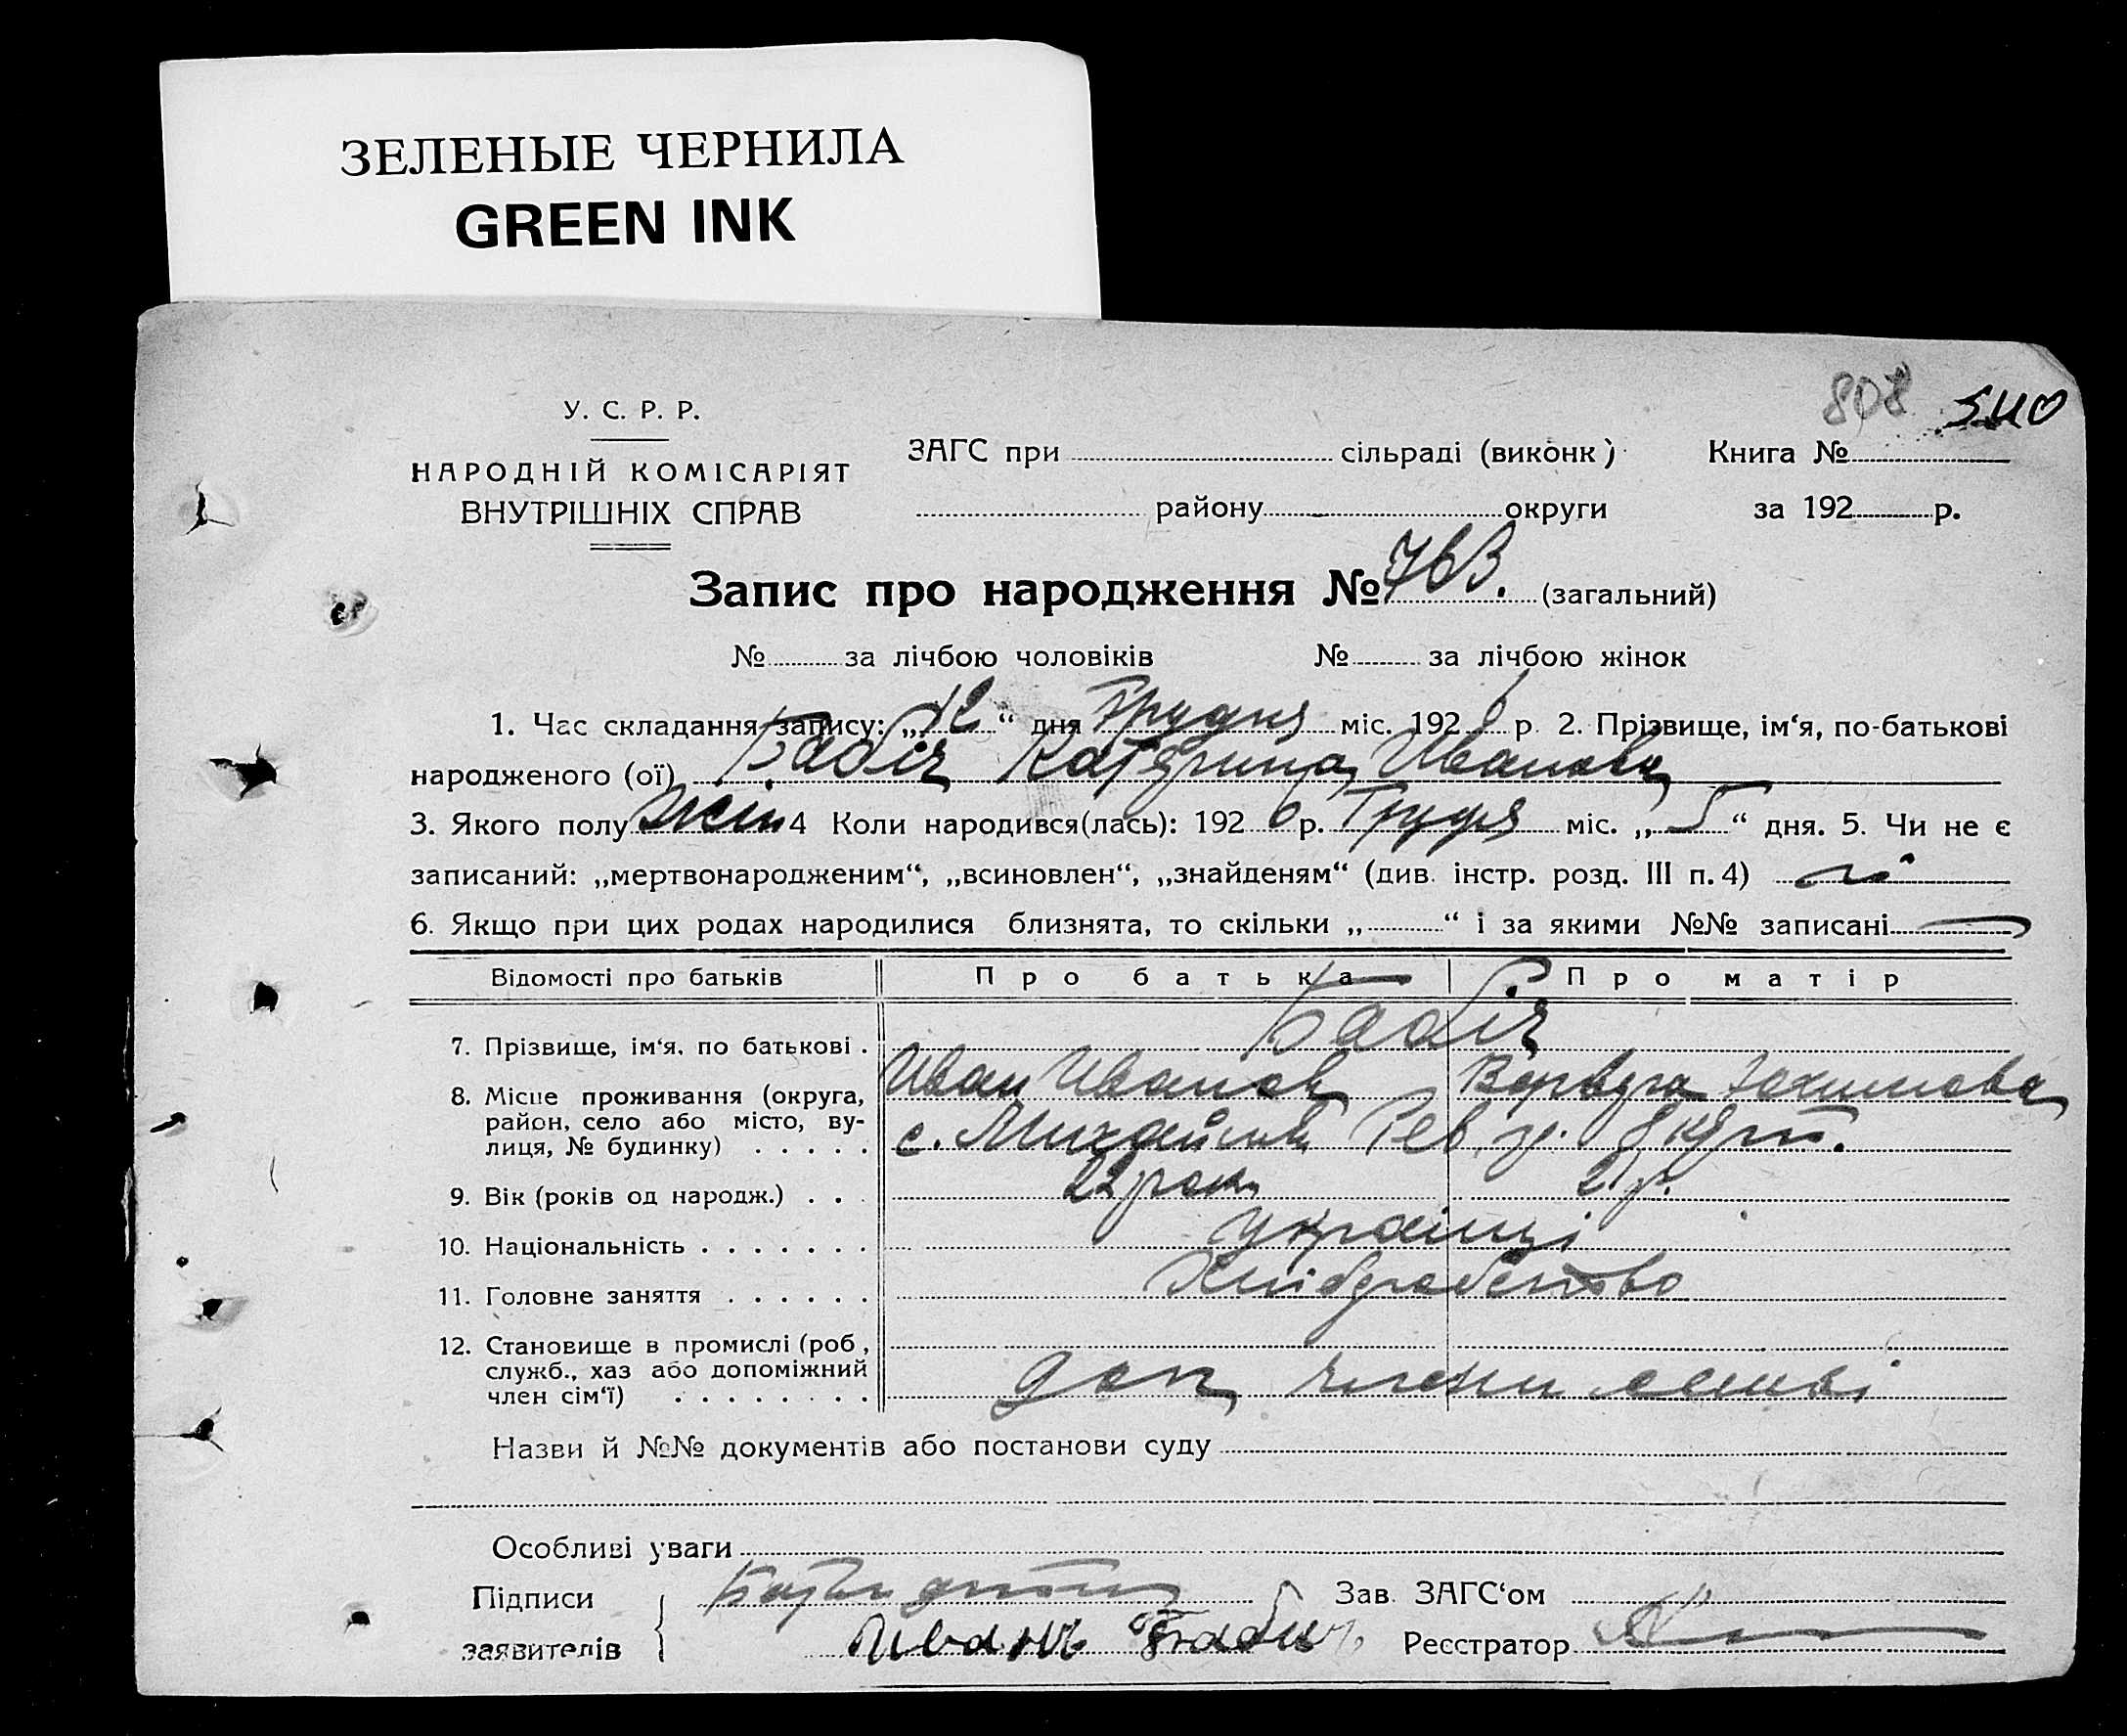 ЗЕЛЕНЫЕ ЧЕРНИЛА
GREEN INK
808
У. С. Р. Р.
НАРОДНІЙ КОМІСАРІЯТ
ВНУТРІШНІХ СПРАВ
ЗАГС при сільраді (виконк)
району округи
Книга №
за 192 р.
Запис про народження № 763. (загальний)
№ за лічбою чоловіків № за лічбою жінок
1. Час складання запису: „12“ дня Грудня міс. 1926 р. 2. Прізвище, ім‘я, по-батькові
народженого (ої) Бабіч Катерина Иванова
3. Якого полу жін 4 Коли народився(лась): 1926 р. Грудня міс. „5“ дня. 5. Чи не є
записаний: „мертвонародженим“, „всиновлен“, „знайденям“ (див. інстр. розд. III п. 4) ні
6. Якщо при цих родах народилися близнята, то скільки „ “ і за якими №№ записані
Відомості про батьків Про батька Про матір
7. Прізвище, ім‘я, по батькові . Бабіч
Иван Иванов Варвара
8. Місце проживання (округа,
район, село або місто, ву-
лиця, № будинку) . . . . . с.
9. Вік (років од народж.) . . . 22 рок 21 р.
10. Національність . . . . . . . українці
11. Головне заняття . . . . . . Хліборобство
12. Становище в промислі (роб,
служб., хаз або допоміжний
член сім‘ї) . . . . . . . . доп члени
Назви й №№ документів або постанови суду
Особливі уваги
Підписи
заявителів
Иванъ Бабич
Зав. ЗАГС‘ом
Реєстратор